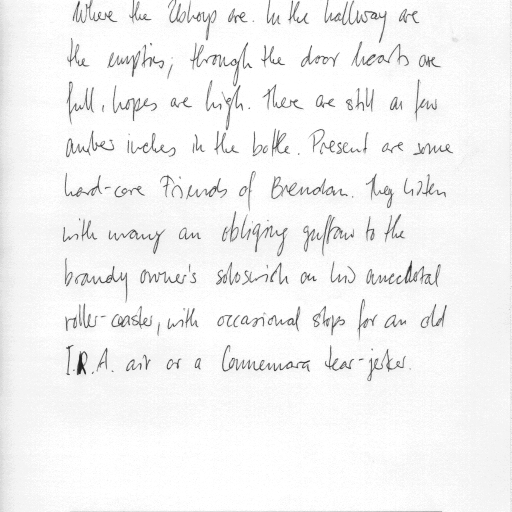 Where the Bishops are. In the hallway are
the empties; through the door hearts are
full, hopes are high. There are still a few
amber inches in the bottle. Present are some
hard-core Friends of Brendan. They listen
with many an obliging guffaw to the
brandy owner's solo on his anecdotal
roller-coaster, with occasional stops for an old
I.R.A. air or a Connemara tear-jerker.